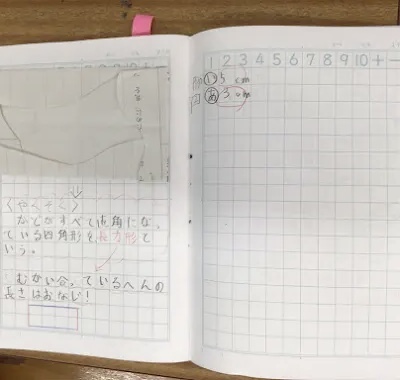 〈やくそく〉
かどがすべて直角になっ
ている四角形を長方形と
いう。
むかい合っているへんの
長さはおなじ！
1 2 3 4 5 6 7 8 9 10 + -
5 cm
あ 3 cm